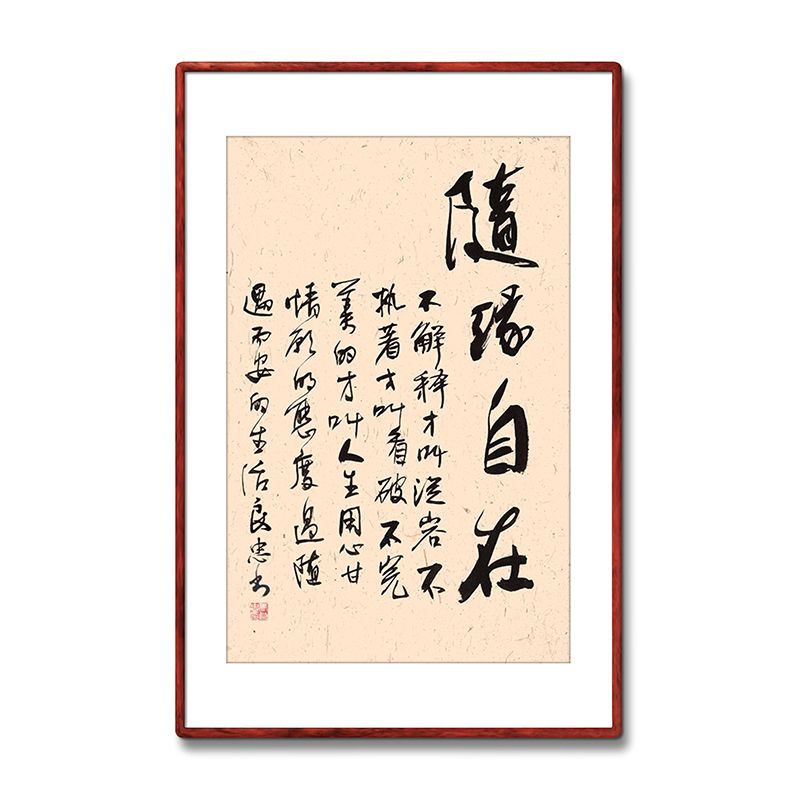 隨緣自在
不解释才叫从容不
執著才叫看破不完
美的才叫人生用心甘
情願的態度過随
遇而安的生活良忠书